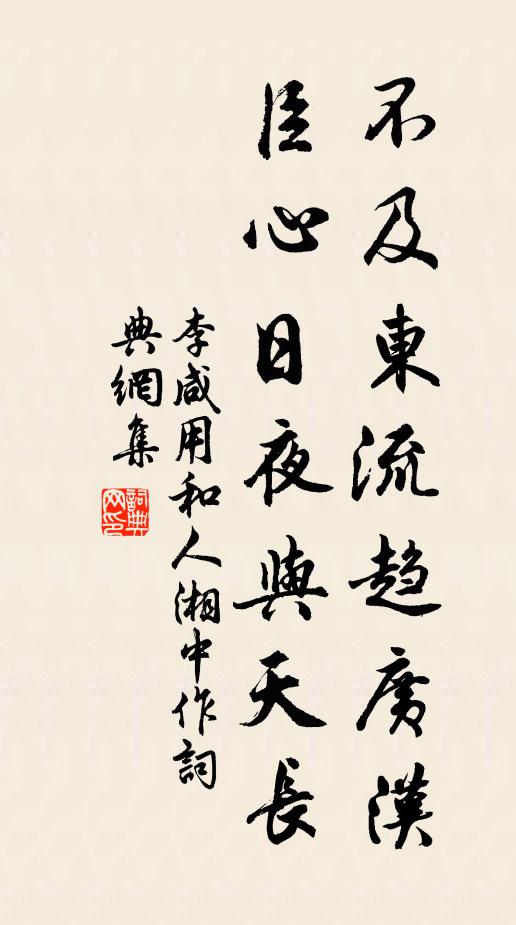 不及東流趨廣漢
臣心日夜與天長
李咸用和人湘中作詞
典網集
詞典網印